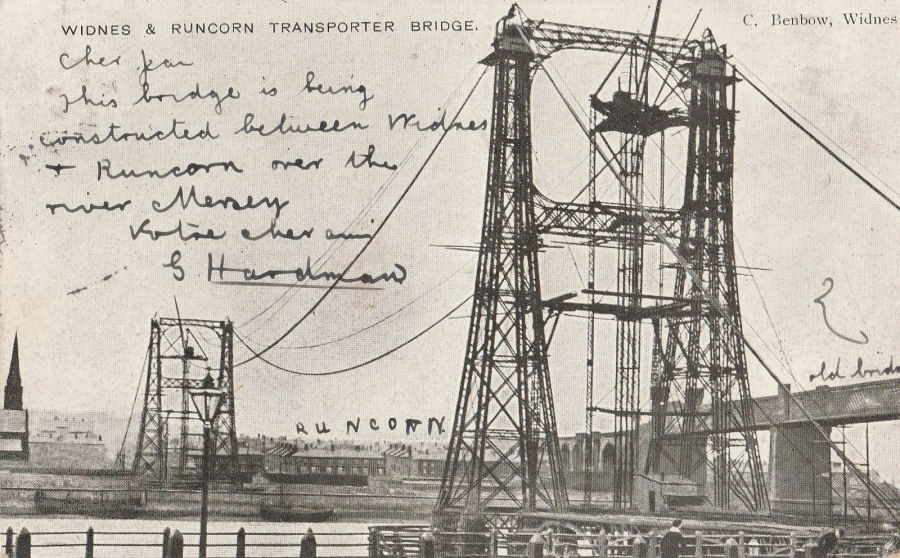 WIDNES & RUNCORN TRANSPORTER BRIDGE.
C. Benbow, Widnes
Cher Jean
This bridge is being
constructed between Widnes
+ Runcorn over the
river Mersey
Votre cher ami
G Hardman
old bridge
RUNCORN